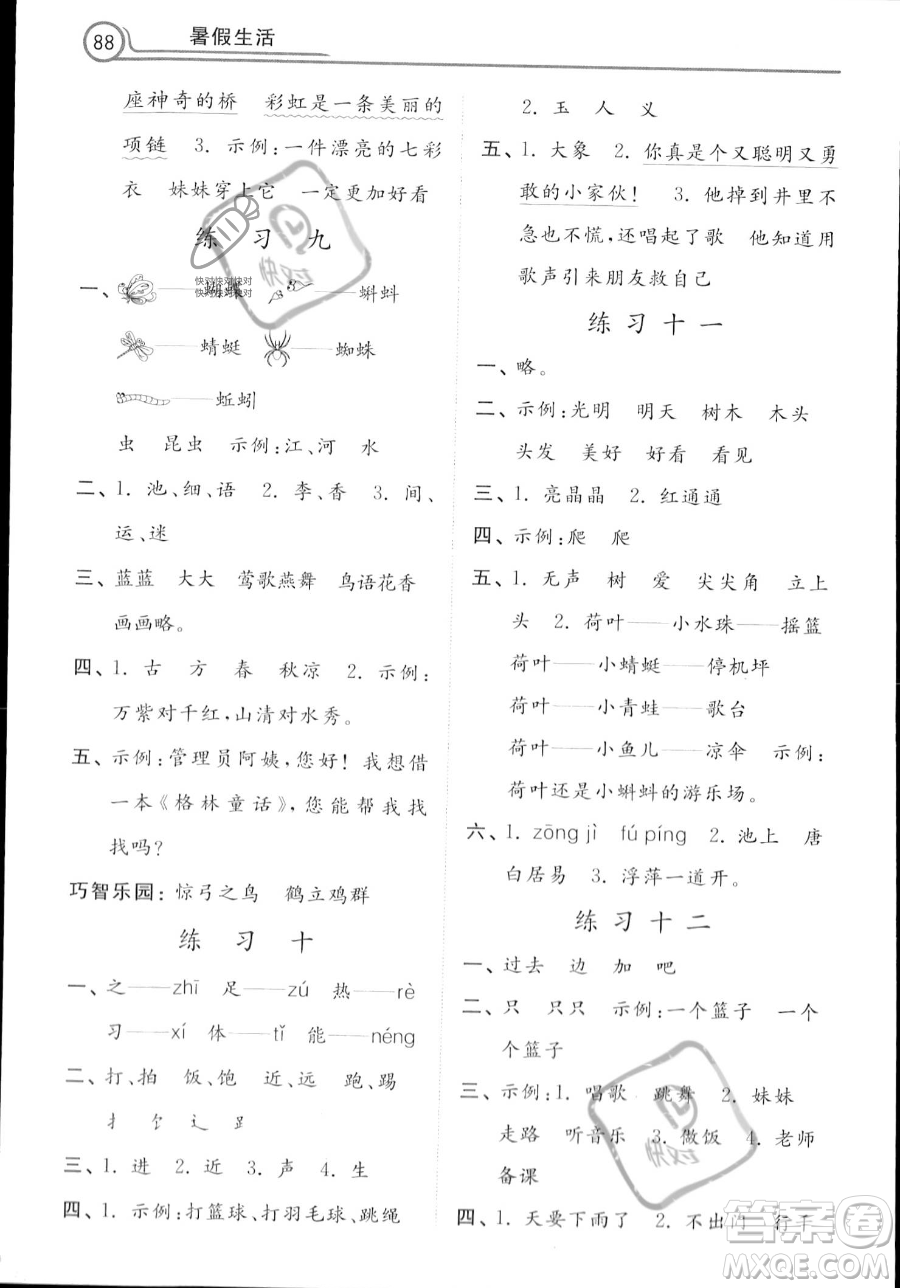 88 暑假生活
座神奇的桥 彩虹是一条美丽的
项链 3. 示例:一件漂亮的七彩
衣 妹妹穿上它 一定更加好看
练 习 九
一、——蝴蝶 ——蝌蚪
——蜻蜓 ——蜘蛛
——蚯蚓
虫 昆虫 示例:江、河 水
二、1. 池、细、语 2. 李、香 3. 间、
运、迷
三、蓝蓝 大大 莺歌燕舞 鸟语花香
画画略。
四、1. 古 方 春 秋凉 2. 示例:
万紫对千红,山清对水秀。
五、示例:管理员阿姨,您好! 我想借
一本《格林童话》,您能帮我找
找吗?
巧智乐园: 惊弓之鸟 鹤立鸡群
练 习 十
一、之——zhī 足——zú 热——rè
习——xí 体——tǐ 能——néng
二、打、拍 饭、饱 近、远 跑、踢
扌 饣 辶 𧾷
三、1. 进 2. 近 3. 声 4. 生
四、1. 示例:打篮球、打羽毛球、跳绳
2. 玉 人 义
五、1. 大象 2. 你真是个又聪明又勇
敢的小家伙! 3. 他掉到井里不
急也不慌,还唱起了歌 他知道用
歌声引来朋友救自己
练 习 十 一
一、略。
二、示例:光明 明天 树木 木头
头发 美好 好看 看见
三、1. 亮晶晶 2. 红通通
四、示例:爬 爬
五、1. 无声 树 爱 尖尖角 立上
头 2. 荷叶——小水珠——摇篮
荷叶——小蜻蜓——停机坪
荷叶——小青蛙——歌台
荷叶——小鱼儿——凉伞 示例:
荷叶还是小蝌蚪的游乐场。
六、1. zōng jì fú píng 2. 池上 唐
白居易 3. 浮萍一道开。
练 习 十 二
一、过去 边 加 吧
二、只 只只 示例:一个篮子 一个
个篮子
三、示例:1. 唱歌 跳舞 2. 妹妹
走路 听音乐 3. 做饭 4. 老师
备课
四、1. 天要下雨了 2. 不出门 行千
快对快对快对
快对快对快对
快对
快对
答案卷
MXQE.COM